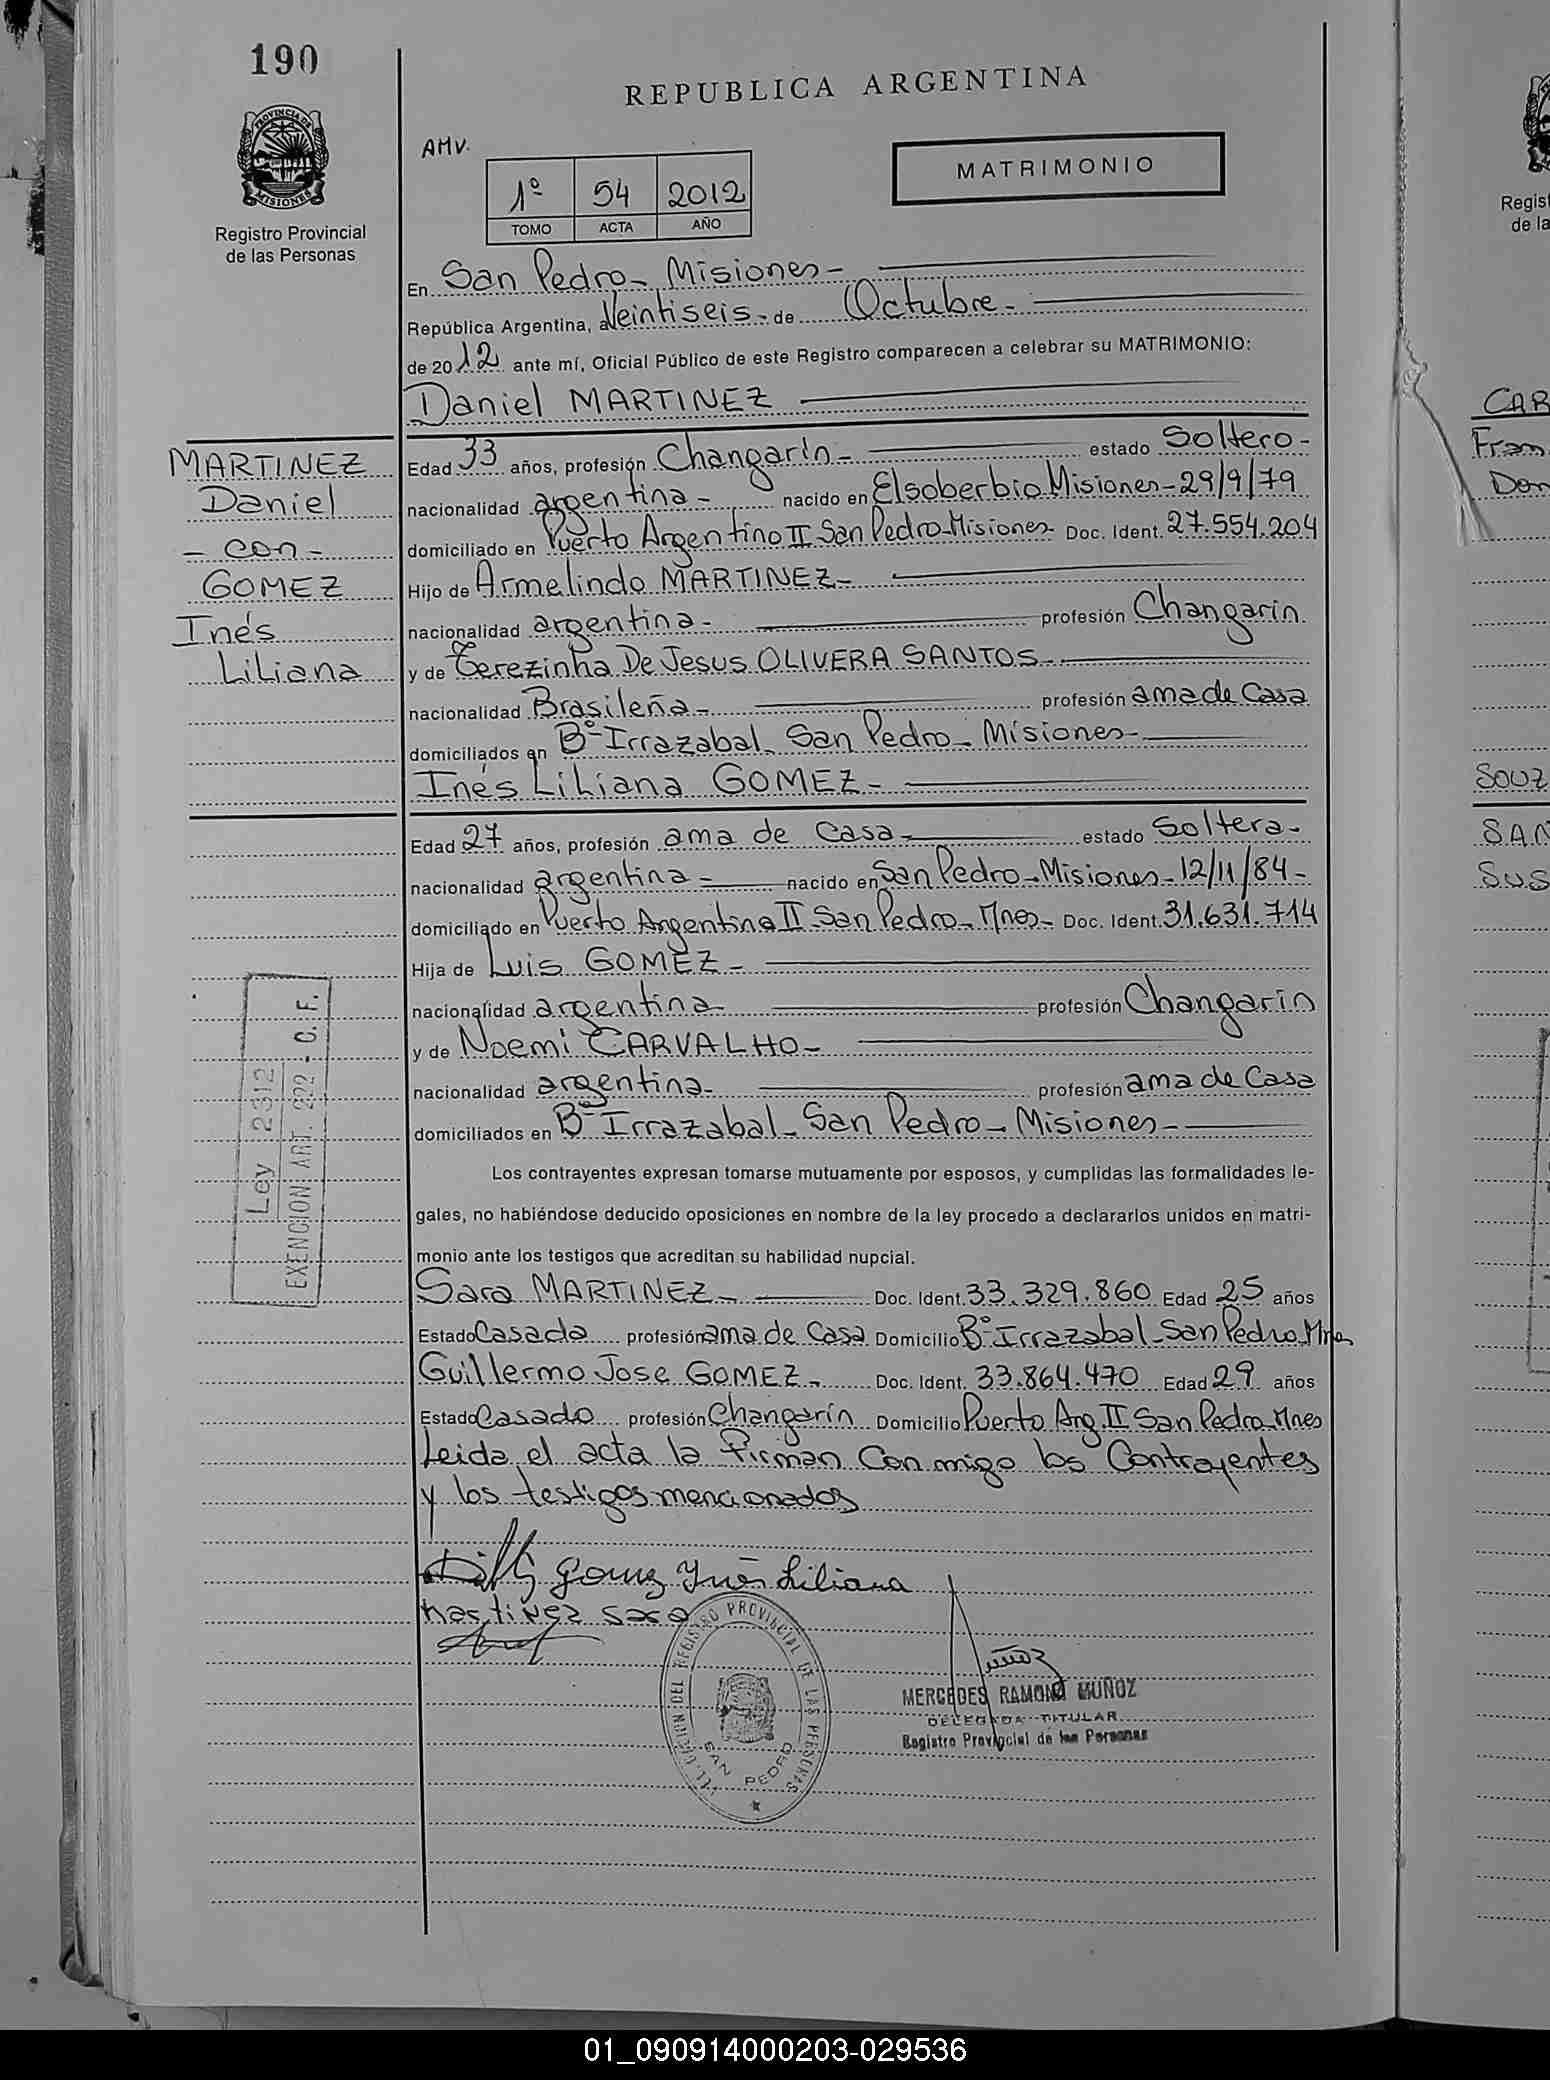 190
REPUBLICA ARGENTINA
PROVINCIA DE
MISIONES
Registro Provincial
de las Personas
AMV.
MATRIMONIO
1º 54 2012
TOMO ACTA AÑO
En San Pedro - Misiones -
República Argentina, a Veintiseis - de Octubre -
de 2012 ante mí, Oficial Público de este Registro comparecen a celebrar su MATRIMONIO:
Daniel MARTINEZ
MARTINEZ
Daniel
- con -
GOMEZ
Inés
Liliana
Edad 33 años, profesión Changarín - estado Soltero -
nacionalidad argentina - nacido en Elsoberbio Misiones - 29/9/79
domiciliado en Puerto Argentino II San Pedro - Misiones Doc. Ident. 27.554.204
Hijo de Armelindo MARTINEZ -
nacionalidad argentina - profesión Changarin
y de Terezinha De Jesus OLIVERA SANTOS -
nacionalidad Brasileña - profesión ama de Casa
domiciliados en Bº Irrazabal - San Pedro - Misiones -
Inés Liliana GOMEZ -
Edad 27 años, profesión ama de Casa - estado Soltera -
nacionalidad argentina - nacido en San Pedro - Misiones - 12/11/84 -
domiciliado en Puerto Argentino II - San Pedro - Mnes - Doc. Ident. 31.631.714
Hija de Luis GOMEZ -
nacionalidad argentina profesión Changarín
y de Noemi CARVALHO -
nacionalidad argentina - profesión ama de Casa
domiciliados en Bº Irrazabal - San Pedro - Misiones -
Ley 2312
EXENCION ART. 222 - C. F.
Los contrayentes expresan tomarse mutuamente por esposos, y cumplidas las formalidades le-
gales, no habiéndose deducido oposiciones en nombre de la ley procedo a declararlos unidos en matri-
monio ante los testigos que acreditan su habilidad nupcial.
Sara MARTINEZ - Doc. Ident. 33.329.860 Edad 25 años
Estado Casada profesión ama de Casa Domicilio Bº Irrazabal - San Pedro - Mnes
Guillermo Jose GOMEZ - Doc. Ident. 33.864.470 Edad 29 años
Estado Casado profesión Changarín Domicilio Puerto Arg. II San Pedro - Mnes
Leida el acta la firman Con migo los Contrayentes
y los testigos mencionados
Gomez Ynés Liliana
Martinez Sara
DEL REGISTRO PROVINCIAL DE LAS PERSONAS
SAN PEDRO
Muñoz
MERCEDES RAMONA MUÑOZ
DELEGADA TITULAR
Registro Provincial de las Personas
Regist
de la
CAR
Fran
Don
SOUZ
SAN
SUS
01_090914000203-029536